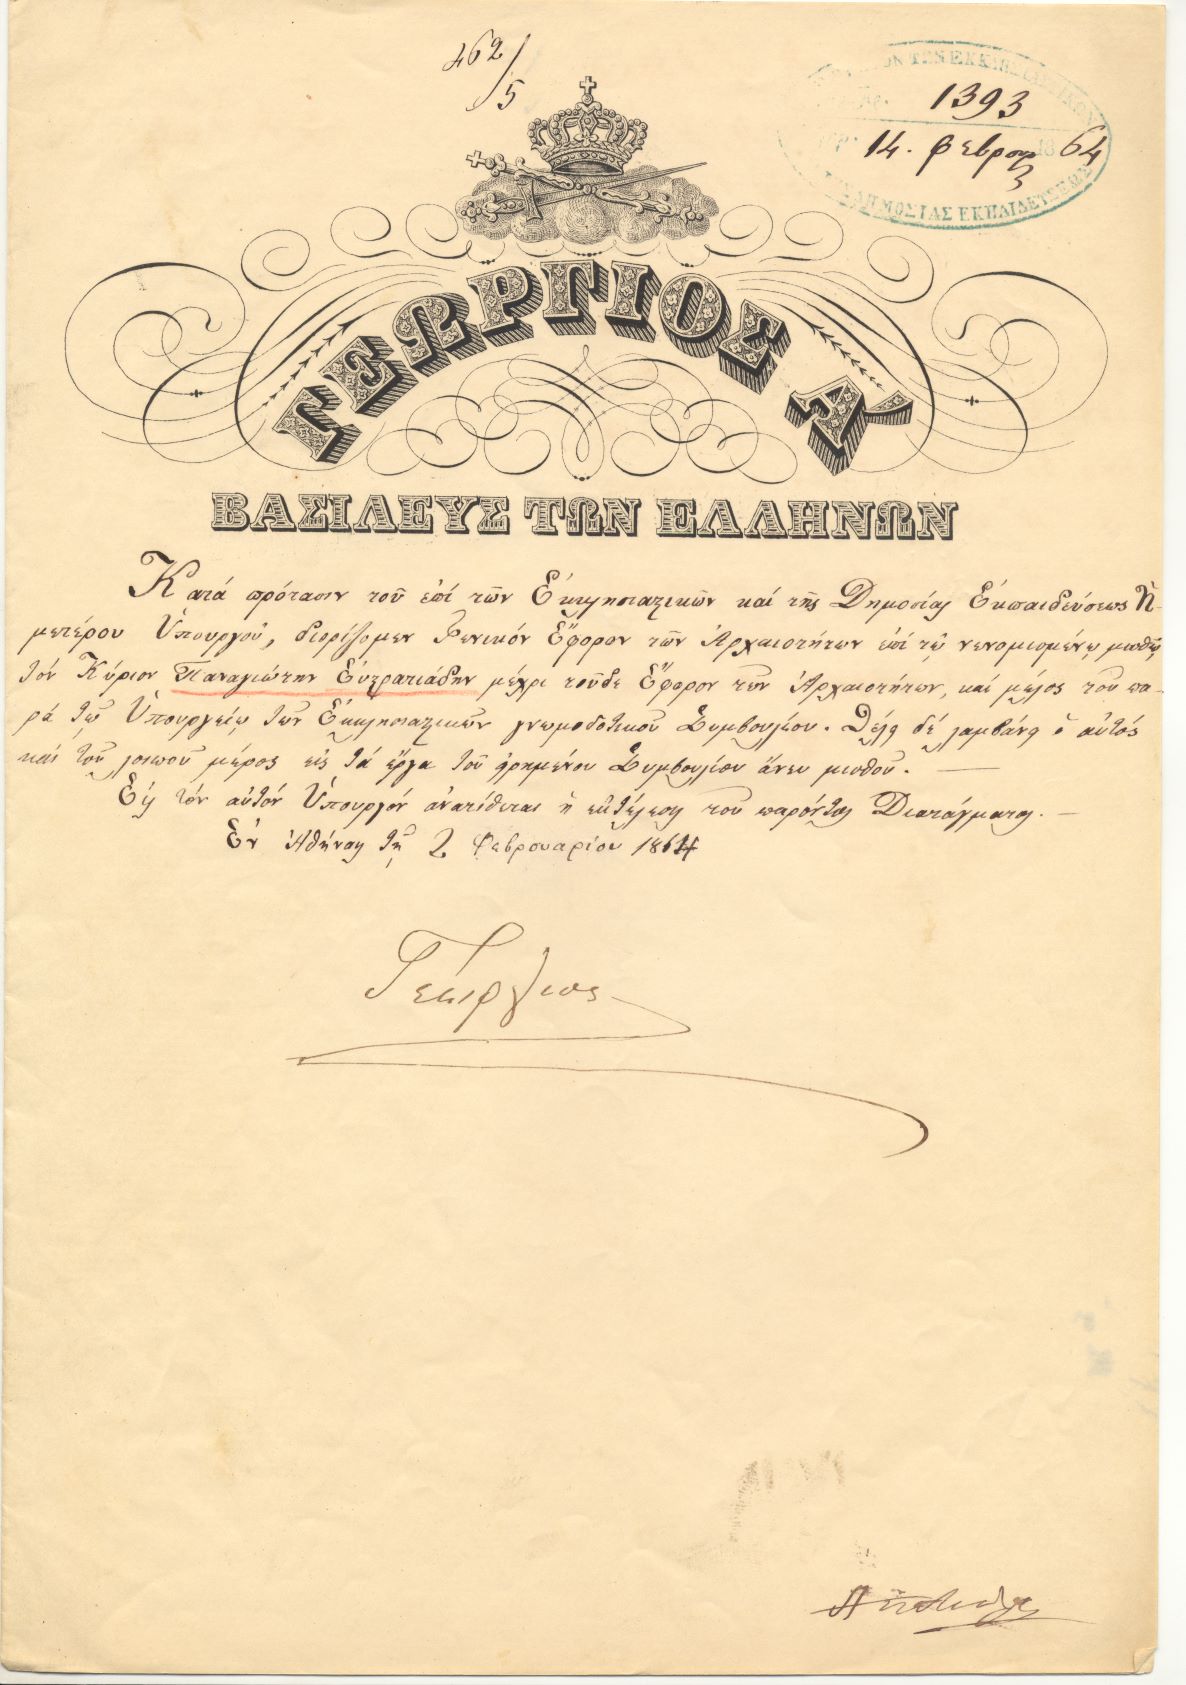 462/5
ΤΩΝ ΕΚΚΛΗΣΙΑΣΤΙΚΩΝ
1393
14. Φεβρου 1864
ΔΗΜΟΣΙΑΣ ΕΚΠΑΙΔΕΥΣΕΩΣ
ΓΕΩΡΓΙΟΣ Α
ΒΑΣΙΛΕΥΣ ΤΩΝ ΕΛΛΗΝΩΝ
Κατά πρότασιν τοῦ ἐπί τῶν Ἐκκλησιαστικῶν καί τῆς Δημοσίας Ἐκπαιδεύσεως Ἡ-
μετέρου Ὑπουργοῦ, διορίζομεν Γενικόν Ἔφορον τῶν Ἀρχαιοτήτων ἐπί τῷ νενομισμένῳ μισθῷ
τόν Κύριον Παναγιώτην Εὐστρατιάδην μέχρι τοῦδε Ἔφορον των Ἀρχαιοτήτων, καί μέλος του πα-
ρά τῷ Ὑπουργείῳ των Ἐκκλησιαστικῶν γνωμοδοτικοῦ Συμβουλίου. Θέλει δέ λαμβάνει ὁ αὐτός
καί του λοιπού μέρος εἰς τά ἔργα τοῦ εἰρημένου Συμβουλίου ἄνευ μισθοῦ. —
Εἰς τόν αὐτόν Ὑπουργόν ἀνατίθεται ἡ ἐκτέλεσις του παρόντος Διατάγματος. —
Ἐν Ἀθήναις τῇ 2 Φεβρουαρίου 1864
Γεώργιος